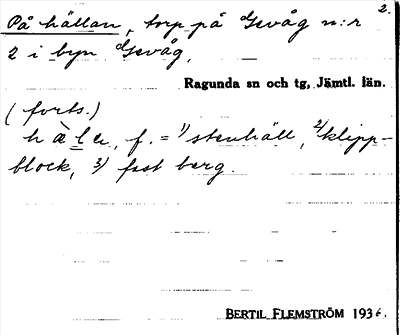 2.
På hällan, torp på Gevåg n:r
2 i byn Gevåg,
Ragunda sn och tg, Jämtl. län.
(forts.)
hä̀la, f. = 1) stenhäll, 2) klipp-
block, 3) fast berg.
BERTIL FLEMSTRÖM 1936.